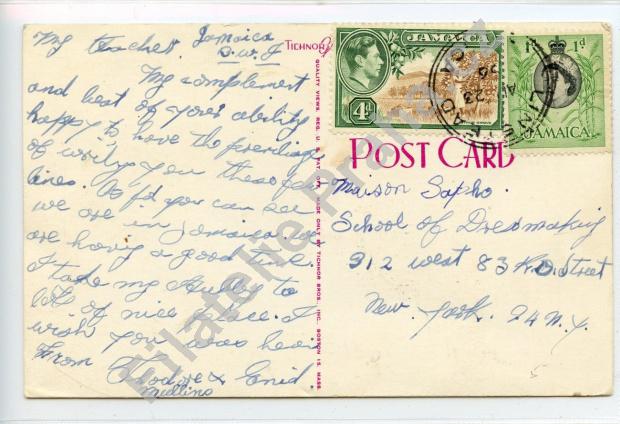 My teacher Jamaica
B.W.I
My complement
and best of your ability
happy to have the
of writing you these few
lines. As if you can see
we are in Jamaica and
are having a good time.
I take my Hubby to
lots of nice place. I
wish you was hear
From
Enid
Mullins
TICHNOR
QUALITY VIEWS, REG. U. S. PAT. OFF. MADE ONLY BY TICHNOR BROS., INC., BOSTON 15, MASS.
JAMAICA
4D
1D 1D
JAMAICA
POST CARD
Maison Sapho
School of Dressmaking
312 west 83 R.D. Street
New York. 24 N.Y.
5
Filatelie Prohaska